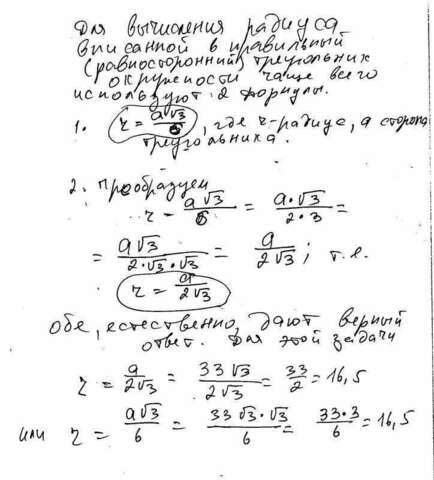 Для вычисления радиуса
вписанной в правильный
(равносторонний) треугольник
окружности чаще всего
используют 2 формулы.
1. r = a√3/6, где r-радиус, a сторона
треугольника.
2. Преобразуем
r - a√3/6 = a·√3/2·3 =
= a√3/2·√3·√3 = a/2√3; т.е.
r = a/2√3
обе, естественно, дают верный
ответ. Для этой задачи
r = a/2√3 = 33√3/2√3 = 33/2 = 16,5
или r = a√3/6 = 33√3·√3/6 = 33·3/6 = 16,5